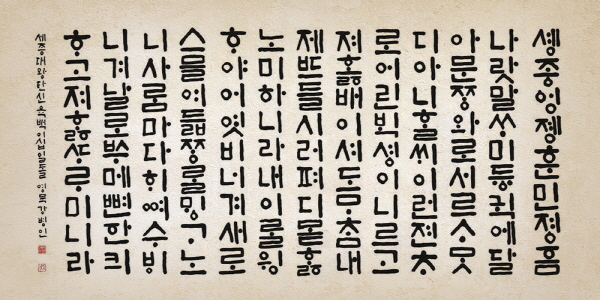 솅종엉졩훈민졍흠
나랏말ᄊᆞ미듕귁에달
아문ᄍᆞᆼ와로서르ᄉᆞᄆᆞᆺ
디아니ᄒᆞᆯᄊᆡ이런젼ᄎᆞ
로어린ᄇᆡᆨ셩이니르고
져ᄒᆞᇙ배이셔도ᄆᆞᄎᆞᆷ내
제ᄠᅳ들시러펴디몯ᄒᆞᇙ
노미하니라내이ᄅᆞᆯ윙
ᄒᆞ야어엿비너겨새로
스믈여듧ᄍᆞᆼᄅᆞᆯᄆᆡᇰᄀᆞ노
니사ᄅᆞᆷ마다ᄒᆡᅇᅧ수ᄫᅵ
니겨날로ᄡᅮ메뼌한킈
ᄒᆞ고져ᄒᆞᇙᄯᆞᄅᆞ미니라
세종대왕탄신육백이십일돌 영묵 강병인